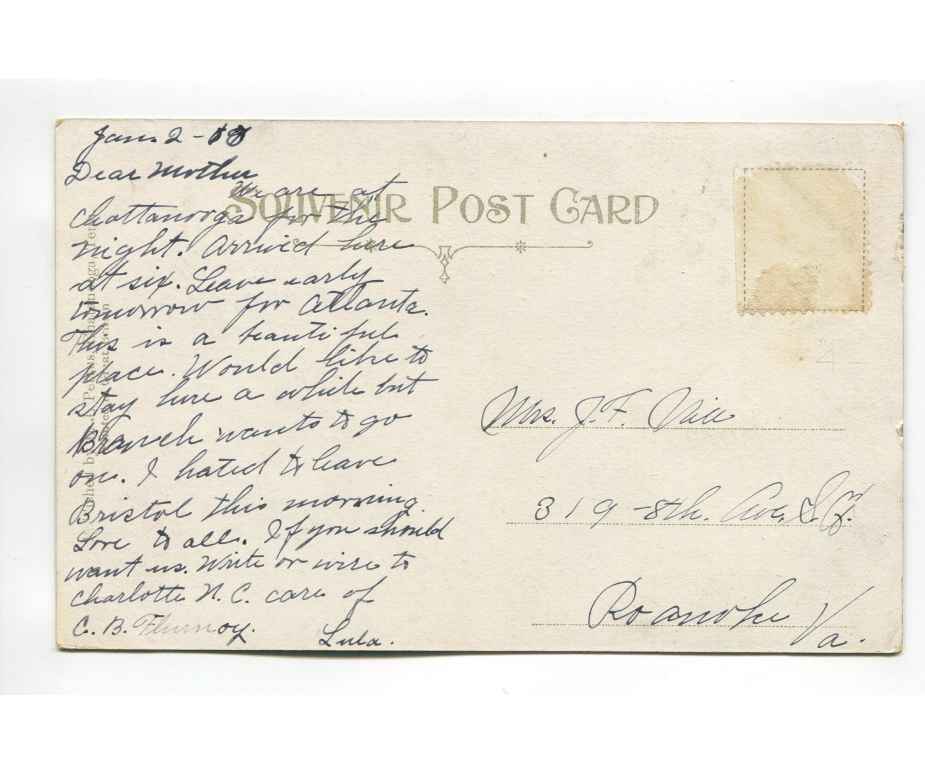 Jan. 2 -
Dear Mother
We are at
Chattanooga for the
night. Arrived here
at six. Leave early
tomorrow for Atlanta.
This is a beautiful
place. Would like to
stay here a while but
Branch wants to go
on. I hated to leave
Bristol this morning.
Love to all. If you should
want us. Write or wire to
Charlotte N.C. care of
C. B. Flournoy.
Lula.
SOUVENIR POST CARD
Mrs. J. F.
319 - 8th. Ave. S.
Roanoke Va.